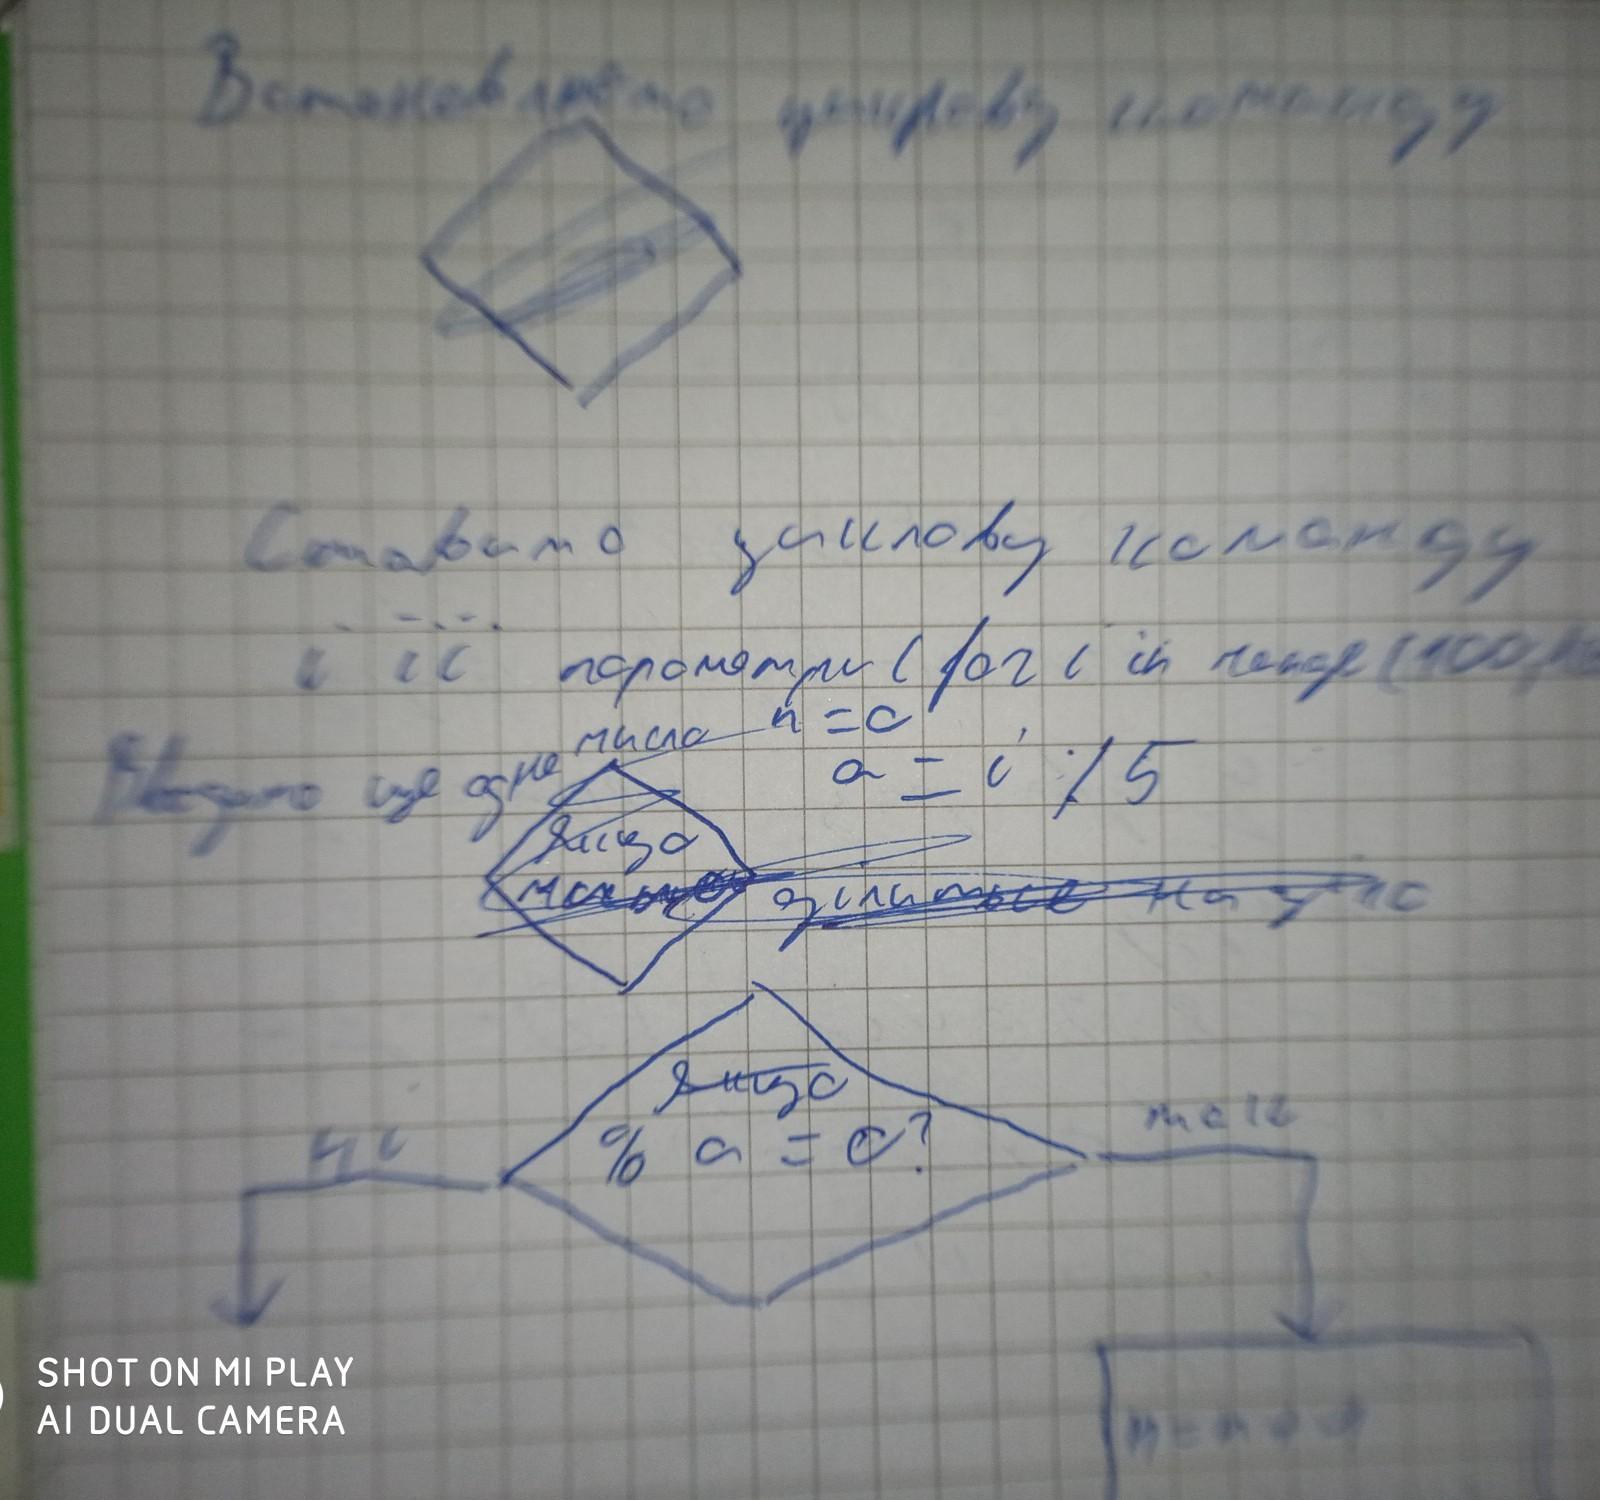 Встановлюємо циклову команду
Ставимо циклову команду
і її параметри (for i in range (100,
Вводимо ще одне число n = 0
a = i % 5
Якщо
менше ділиться на
Якщо
% a = 0?
ні
так
SHOT ON MI PLAY
AI DUAL CAMERA